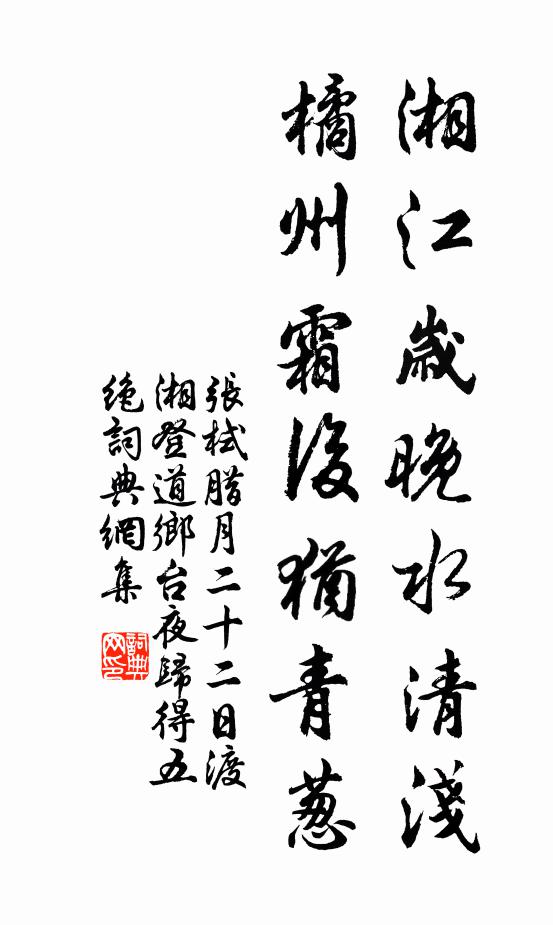 湘江歲晚水清淺
橘州霜後猶青葱
張栻臘月二十二日渡
湘登道鄉台夜歸得五
絶詞典網集
詞典網印